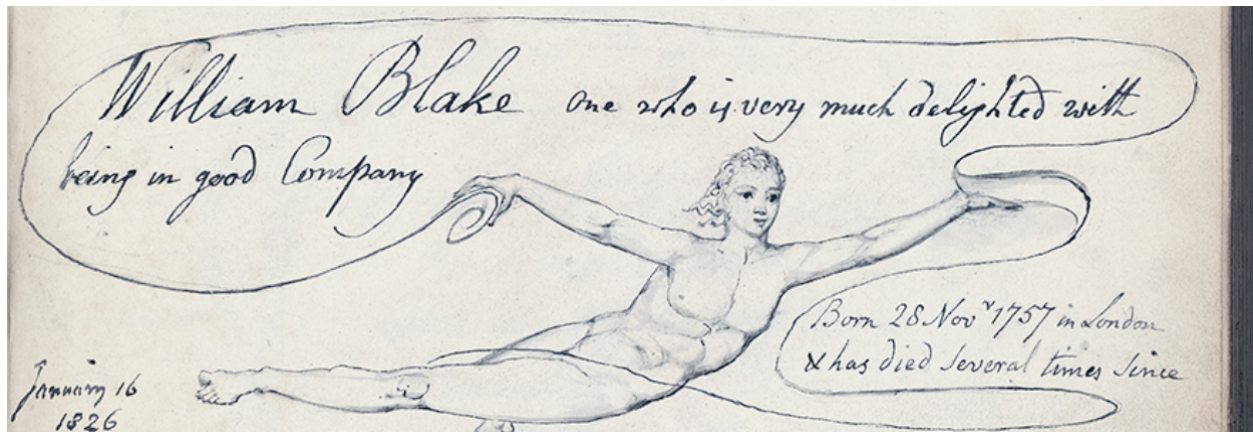 William Blake one who is very much delighted with
being in good Company
Born 28 Novʳ 1757 in London
& has died several times since
January 16
1826